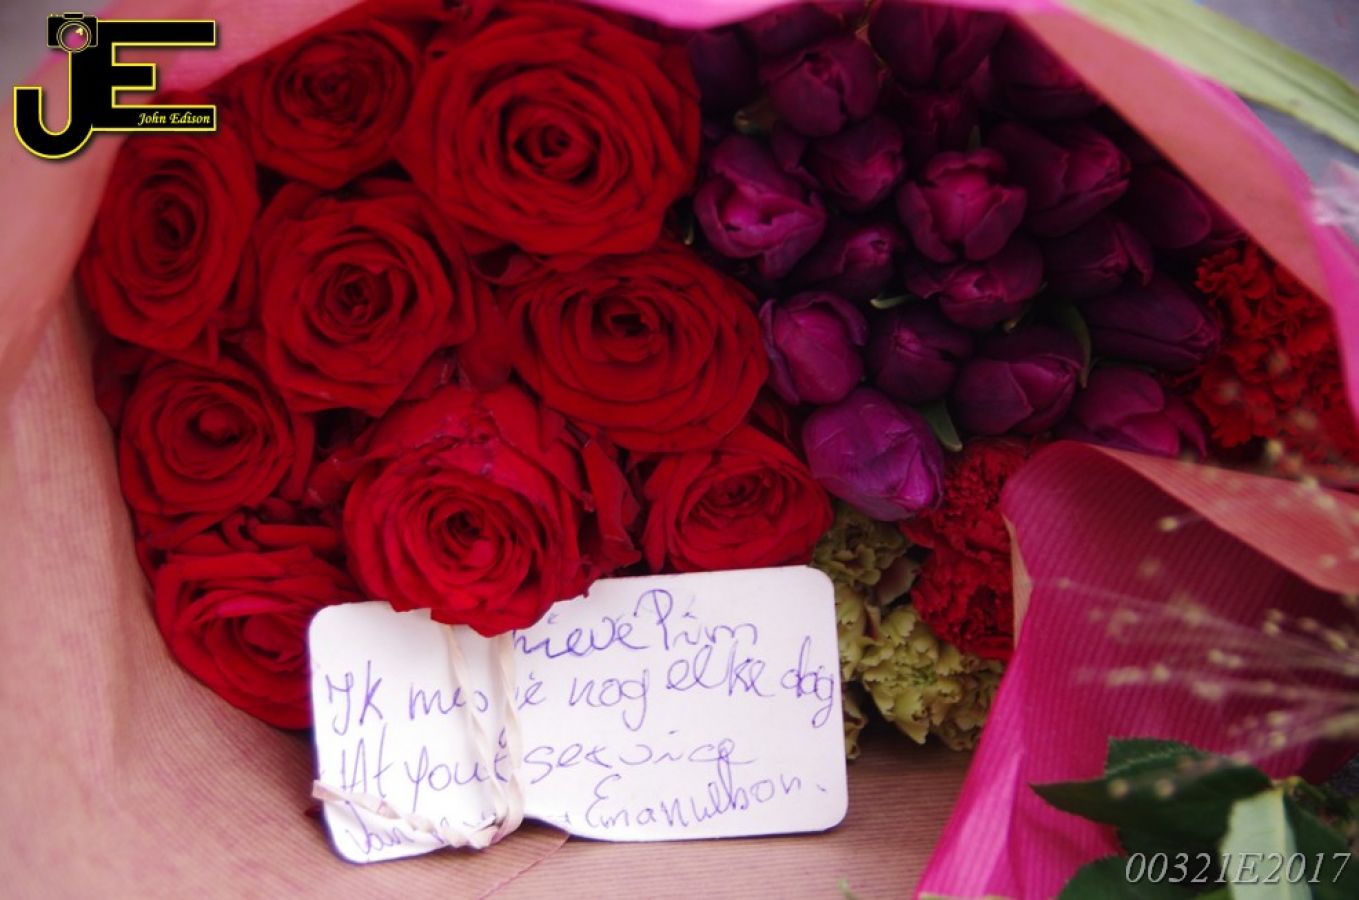 JE
John Edison
Pim
Ik mis je nog elke dag
"At your service
Emanuelson.
00321E2017